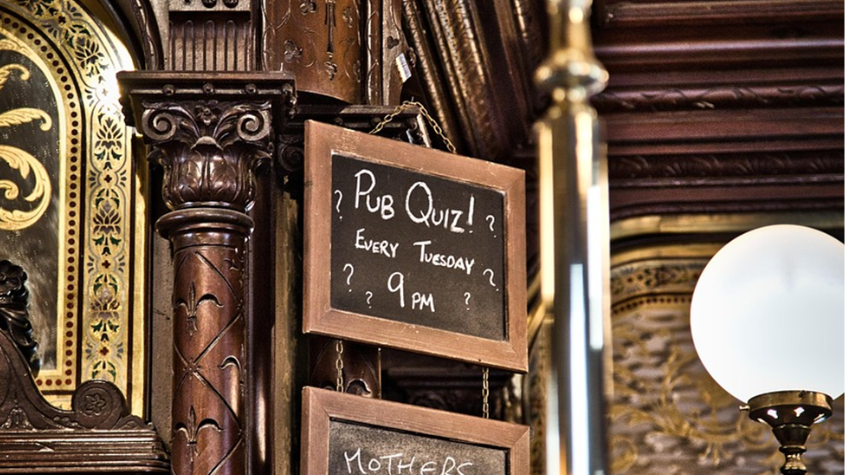 ? PUB QUIZ! ?
EVERY TUESDAY
? 9 PM ?
? ?
MOTHERS